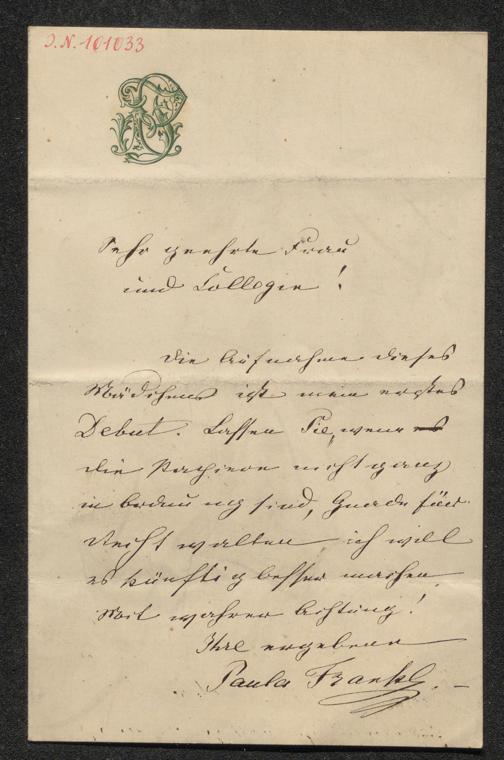 J.N. 101033
Sehr geehrte Frau
und Collegin!
Die Aufnahme dieses
Mädchens ist mein erstes
Debut. Lassen Sie, wenn es
die Papiere nicht ganz
in Ordnung sind, Gnade für
Recht walten, ich will
es künftig besser machen
Mit wahrer Achtung!
Ihre ergebene
Paula Frankl.